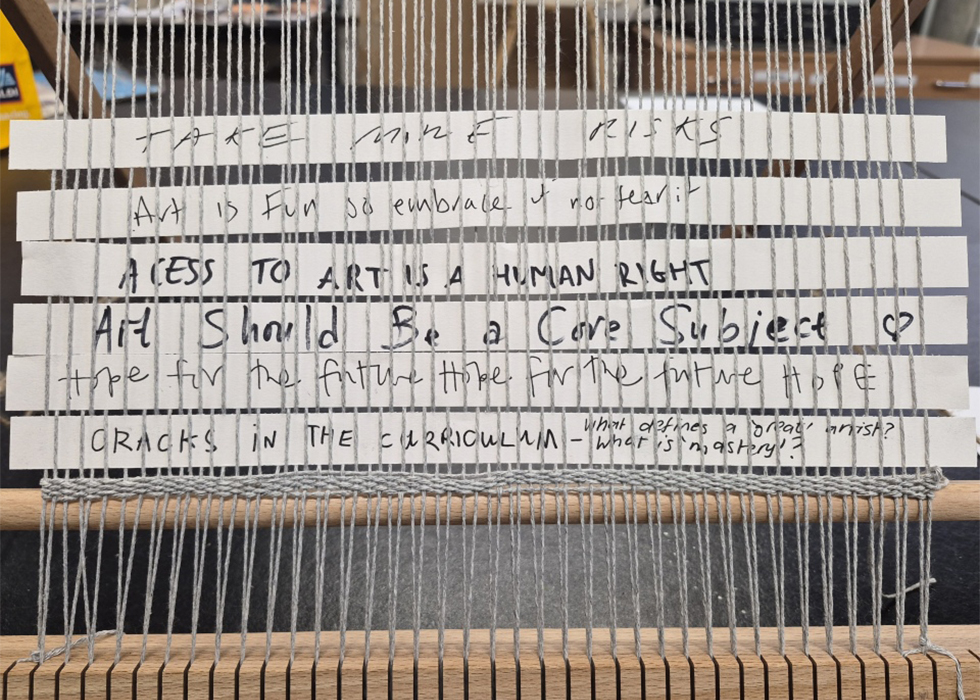 TAKE MORE RISKS
Art is Fun so embrace it not fear it
ACESS TO ART IS A HUMAN RIGHT
Art Should Be a Core Subject ♡
Hope for the future Hope for the future HOPE
CRACKS IN THE CURRICULUM - what defines a 'great' artist?
- what is 'mastery'?